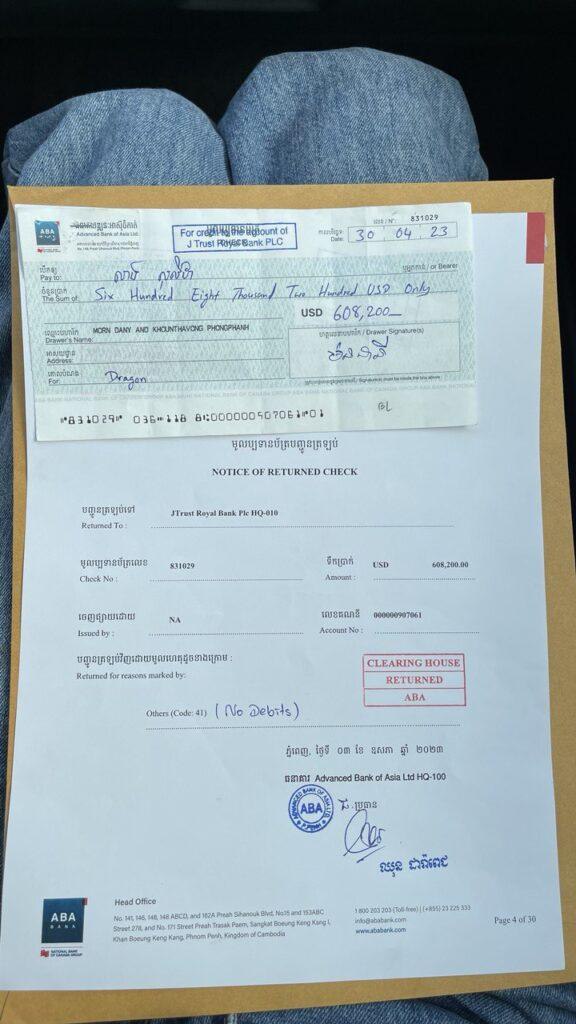 ABA
Advanced Bank of Asia Ltd.
For credit to the account of
J Trust Royal Bank PLC
លេខ / N°: 831029
កាលបរិច្ឆេទ
Date: 30 04 23
បើកឲ្យ
Pay to:
or Bearer
ចំនួនប្រាក់
The Sum of: Six Hundred Eight Thousand Two Hundred USD Only
USD 608,200_
ឈ្មោះម្ចាស់គណនី
Drawer's Name: MORN DANY AND KHOUNTHAVONG PHONGPHANH
ហត្ថលេខាម្ចាស់គណនី / Drawer Signature(s)
អាសយដ្ឋាន
Address:
គោលបំណង
For: Dragon
⑈831029⑈ 036⑉118 8⑆000000907061⑈01
មូលប្បទានប័ត្របញ្ជូនត្រឡប់
NOTICE OF RETURNED CHECK
បញ្ជូនត្រឡប់ទៅ
Returned To : JTrust Royal Bank Plc HQ-010
មូលប្បទានប័ត្រលេខ
Check No : 831029
ទឹកប្រាក់
Amount : USD 608,200.00
ចេញផ្សាយដោយ
Issued by : NA
លេខគណនី
Account No : 000000907061
បញ្ជូនត្រឡប់វិញដោយមូលហេតុដូចខាងក្រោម :
Returned for reasons marked by:
CLEARING HOUSE
RETURNED
ABA
Others (Code: 41) (No Debits)
ភ្នំពេញ, ថ្ងៃទី ០៣ ខែ ឧសភា ឆ្នាំ ២០២៣
ធនាគារ Advanced Bank of Asia Ltd HQ-100
ADVANCED BANK OF ASIA LTD.
ABA
P.PENH
ជ.ប្រធាន
ឈុន ដារ៉ាពេជ
ABA
BANK
NATIONAL BANK
OF CANADA GROUP
Head Office
No. 141, 146, 148, 148 ABCD, and 162A Preah Sihanouk Blvd, No15 and 153ABC
Street 278, and No. 171 Street Preah Trasak Paem, Sangkat Boeung Keng Kang I,
Khan Boeung Keng Kang, Phnom Penh, Kingdom of Cambodia
1 800 203 203 (Toll-free) | (+855) 23 225 333
info@ababank.com
www.ababank.com
Page 4 of 30